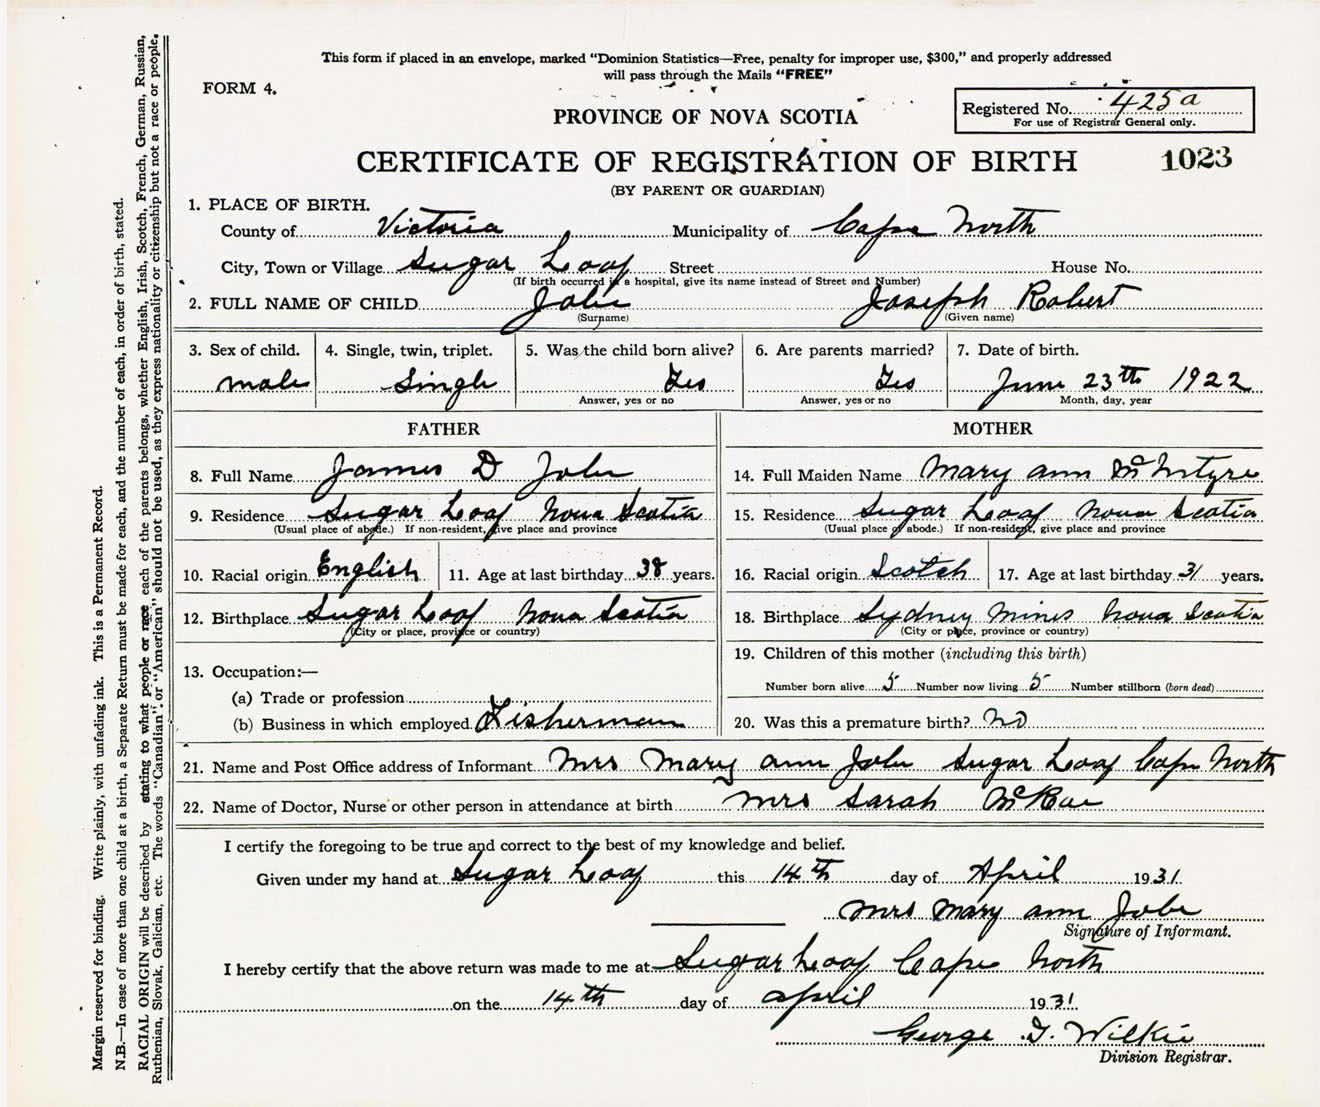 This form if placed in an envelope, marked “Dominion Statistics—Free, penalty for improper use, $300,” and properly addressed
will pass through the Mails “FREE”
FORM 4.
Registered No. 425a
For use of Registrar General only.
PROVINCE OF NOVA SCOTIA
CERTIFICATE OF REGISTRATION OF BIRTH 1023
(BY PARENT OR GUARDIAN)
1. PLACE OF BIRTH.
County of Victoria Municipality of Cape North
City, Town or Village Sugar Loaf Street House No.
(If birth occurred in a hospital, give its name instead of Street and Number)
2. FULL NAME OF CHILD Joseph Robert
(Surname) (Given name)
3. Sex of child. 4. Single, twin, triplet. 5. Was the child born alive? 6. Are parents married? 7. Date of birth.
male Single Yes Yes June 23th 1922
Answer, yes or no Answer, yes or no Month, day, year
FATHER
8. Full Name James D
9. Residence Sugar Loaf Nova Scotia
(Usual place of abode.) If non-resident, give place and province
10. Racial origin English 11. Age at last birthday 38 years.
12. Birthplace Sugar Loaf Nova Scotia
(City or place, province or country)
13. Occupation:—
(a) Trade or profession
(b) Business in which employed Fisherman
MOTHER
14. Full Maiden Name Mary ann McIntyre
15. Residence Sugar Loaf Nova Scotia
(Usual place of abode.) If non-resident, give place and province
16. Racial origin Scotch 17. Age at last birthday 31 years.
18. Birthplace Sydney Mines Nova Scotia
(City or place, province or country)
19. Children of this mother (including this birth)
Number born alive 5 Number now living 5 Number stillborn (born dead)
20. Was this a premature birth? No
21. Name and Post Office address of Informant Mrs Mary ann Sugar Loaf Cape North
22. Name of Doctor, Nurse or other person in attendance at birth Mrs Sarah McRae
I certify the foregoing to be true and correct to the best of my knowledge and belief.
Given under my hand at Sugar Loaf this 14th day of April 1931
Mrs Mary ann
Signature of Informant.
I hereby certify that the above return was made to me at Sugar Loaf Cape North
on the 14th day of april 1931
George Wilkie
Division Registrar.
Margin reserved for binding. Write plainly, with unfading ink. This is a Permanent Record.
N.B.—In case of more than one child at a birth, a Separate Return must be made for each, and the number of each, in order of birth, stated.
RACIAL ORIGIN will be described by stating to what people or race each of the parents belongs, whether English, Irish, Scotch, French, German, Russian,
Ruthenian, Slovak, Galician, etc. The words “Canadian” or “American” should not be used, as they express nationality or citizenship but not a race or people.